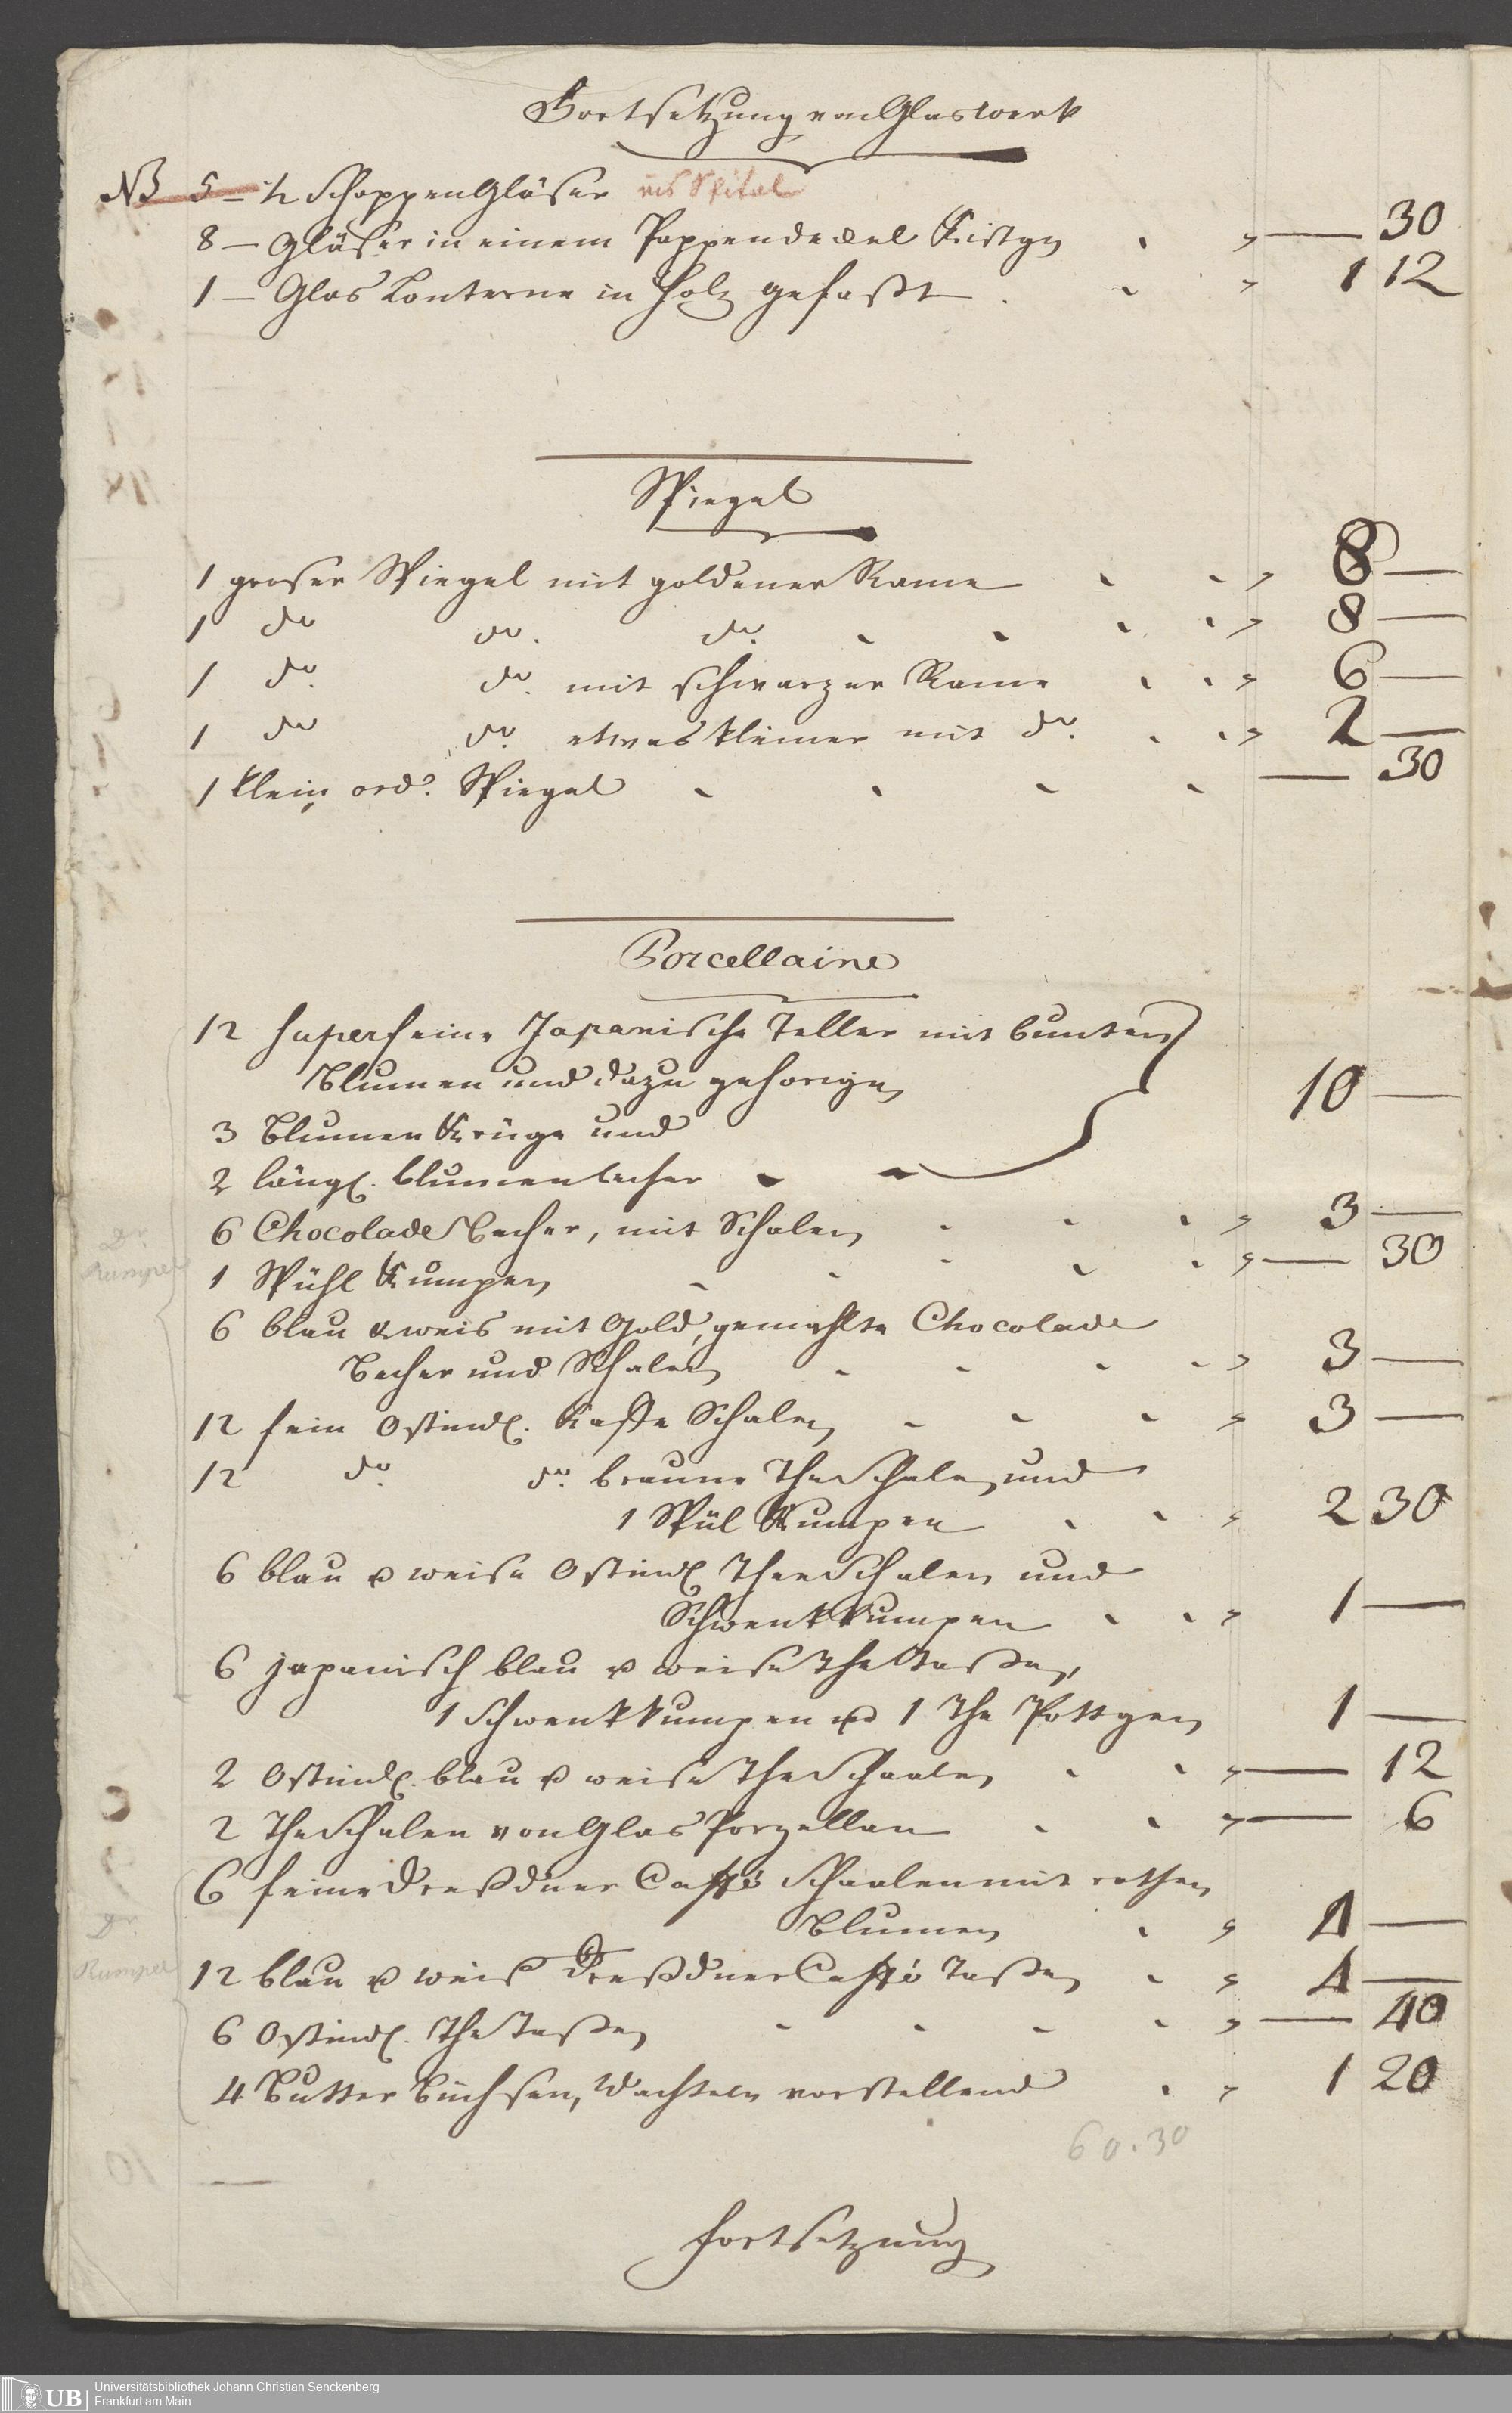 Fortsetzung von Glaswerk
NB 5 – ½ Schoppen Gläser ins Spital
8 – Gläser in einem Pappendeckel Kistgen — 30
1 – Glas Lanterne in Holz gefaßt 1 12
Spiegel
1 groser Spiegel mit goldener Rame 8 —
1 do do. do. 8 —
1 do. do. mit schwarzer Rame 6 —
1 do do. etwas kleiner mit do. 2 —
1 klein ord. Spiegel — 30
Porcellaine
12 superfeine Japanische Teller mit bunten
Blumen und dazu gehorigen 10 —
3 Blumen Krüge und
2 längl. blumenbecher
6 Chocolade Becher, mit Schalen 3 —
Dr. Rumpel
1 Spühl Kumpen — 30
6 blau & weis mit Gold, gemahlte Chocolade
Becher und Schalen 3 —
12 fein Ostindl. Kaffe Schalen 3 —
12 do. do. braune The Schalen und
1 Spül Kumpen 2 30
6 blau u weise Ostindl Thee Schalen und
Schwenkkumpen 1 —
6 japanisch blau u weise The Tassen,
1 Schwenkkumpen und 1 The Pottgen 1 —
2 Ostindl. blau u weise The Schaalen — 12
2 The Schalen von Glas Porzellan — 6
6 feine Dreßdner Caffé Schaalen mit rothen
Blumen 4 —
Dr. Rumpel
12 blau u weis Dreßdner Caffé Taßen 4 —
6 Ostindl. The Taßen — 40
4 Butter Büchsen, Wachteln vorstellend 1 20
60.30
Fortsetzung
UB
Universitätsbibliothek Johann Christian Senckenberg
Frankfurt am Main